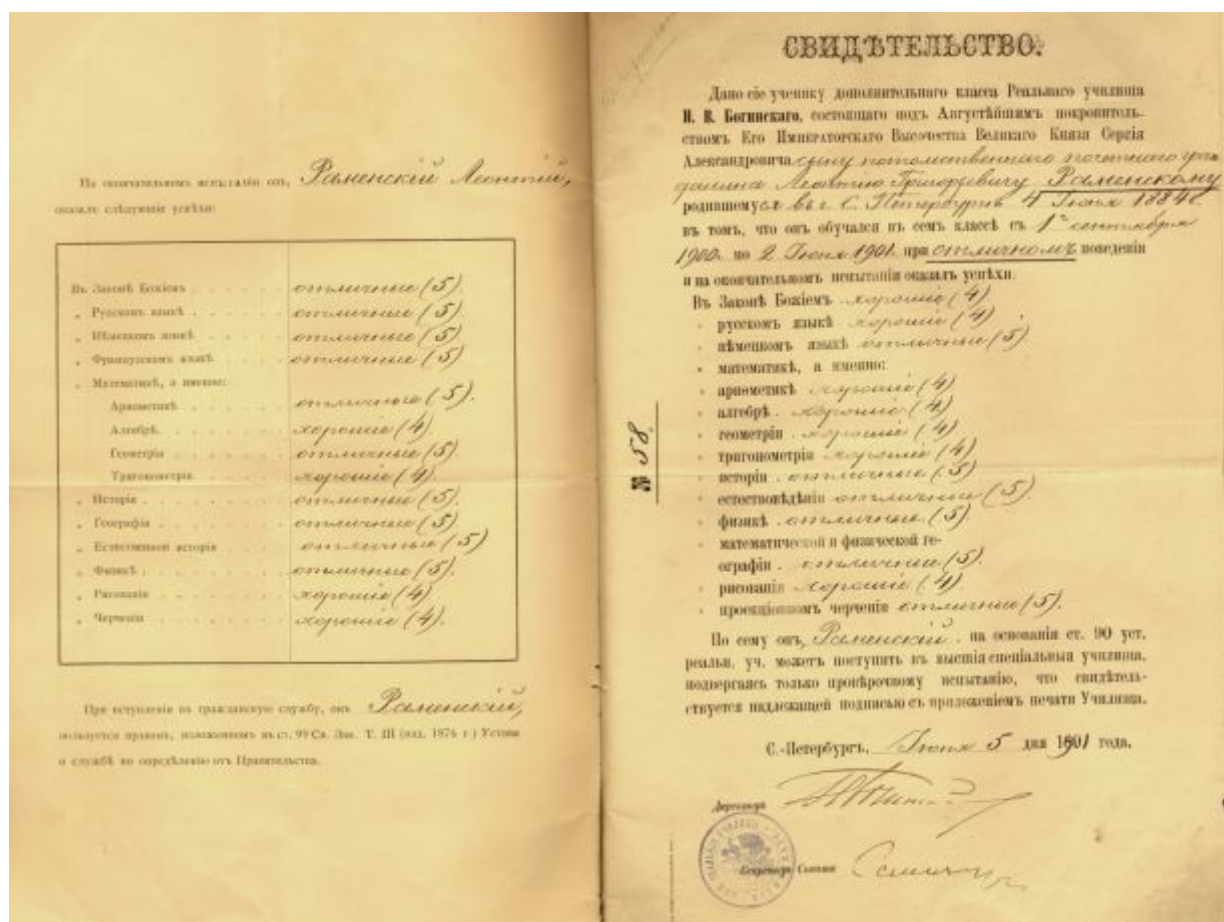 На окончательномъ испытаніи онъ, Раменскій Леонтій,
оказалъ слѣдующіе успѣхи:
Въ Законѣ Божіемъ . . . . . отличные (5).
„ Русскомъ языкѣ . . . . . отличные (5).
„ Нѣмецкомъ языкѣ . . . . . отличные (5).
„ Французскомъ языкѣ . . . . отличные (5)
„ Математикѣ, а именно:
Ариѳметикѣ . . . . . отличные (5).
Алгебрѣ . . . . . хорошіе (4)
Геометріи . . . . . отличные (5)
Тригонометріи . . . . . хорошіе (4).
„ Исторіи . . . . . отличные (5).
„ Географіи . . . . . отличные (5)
„ Естественной исторіи . . . . отличные (5)
„ Физикѣ . . . . . отличные (5).
„ Рисованіи . . . . . хорошіе (4).
„ Черченіи . . . . . хорошіе (4).
При вступленіи въ гражданскую службу, онъ Раменскій,
пользуется правомъ, изложеннымъ въ ст. 99 Св. Зак. Т. III (изд. 1876 г.) Устава
о службѣ по опредѣленію отъ Правительства.
СВИДѢТЕЛЬСТВО.
Дано сіе ученику дополнительнаго класса Реальнаго училища
И. В. Богинскаго, состоящаго подъ Августѣйшимъ покровитель-
ствомъ Его Императорскаго Высочества Великаго Князя Сергія
Александровича сыну потомственнаго почетнаго граж
данина Леонтію Григорьевичу Раменскому
родившемуся въ г. С. Петербургѣ 4 Іюня 1884 г.
въ томъ, что онъ обучался въ семъ классѣ съ 1го сентября
1900 г. по 2 Іюня 1901 при отличномъ поведеніи
и на окончательномъ испытаніи оказалъ успѣхи:
Въ Законѣ Божіемъ хорошіе (4)
„ русскомъ языкѣ хорошіе (4)
„ нѣмецкомъ языкѣ отличные (5)
„ математикѣ, а именно:
„ ариѳметикѣ хорошіе (4)
„ алгебрѣ . хорошіе (4)
„ геометріи . хорошіе (4)
„ тригонометріи хорошіе (4)
„ исторіи . отличные (5)
„ естествовѣдѣніи отличные (5)
„ физикѣ . отличные (5)
„ математической и физической ге-
ографіи . отличные (5)
„ рисованіи хорошіе (4)
„ проекціонномъ черченіи отличные (5).
По сему онъ, Раменскій . на основаніи ст. 90 уст.
реальн. уч. можетъ поступить въ высшія спеціальныя училища,
подвергаясь только провѣрочному испытанію, что свидѣтель-
ствуется надлежащей подписью съ приложеніемъ печати Училища.
С.-Петербургъ, Іюня 5 дня 1901 года.
Директоръ
Секретарь Совѣта
№ 58.